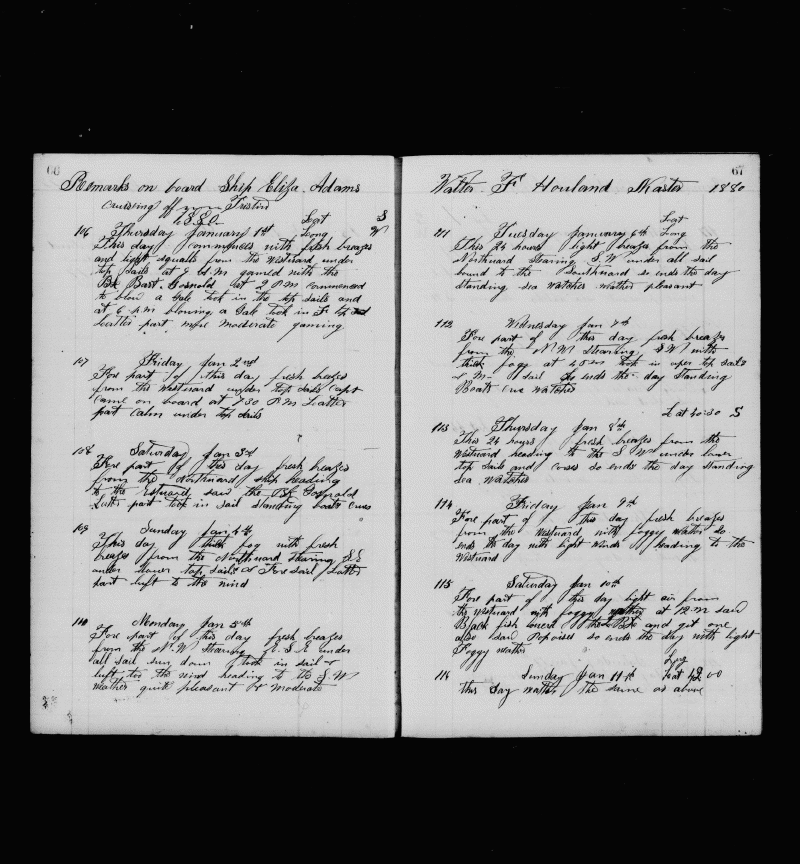 66
Remarks on board Ship Eliza Adams
Cruising off Tristan
1880
Lat S
106 Thursday January 1st Long W
This day commences with fresh breezes
and light squalls from the Westward under
top sails at 9 A.M gamed with the
Bk Bart. Gosnold at 2 P.M commenced
to blow a Gale took in the top sails and
at 6 p.m blowing a Gale took in F top
Latter part more moderate gaming
107 Friday Jan 2nd
Fore part of this day fresh breezes
from the Westward under top sails Capt
came on board at 7.30 P.M Latter
part calm under top sails
108 Saturday Jan 3d
Fore part of this day fresh breezes
from the Northward ship heading
to the Estward saw the Bk Gosnold
Latter part took in sail standing boats crews
109 Sunday Jan 4th
This day thick fog with fresh
breezes from the Northward Stearing S.E
under lower top sails & Fore sail Latter
part luft to the wind
110 Monday Jan 5th
Fore part of this day fresh breezes
from the N.W Stearing E.S.E under
all sail sun down took in sail &
luft too the wind heading to the S.W
weather quite pleasant & moderate
67
Walter F Howland Master 1880
Lat
111 Tuesday January 6th Long
This 24 hours light breezes from the
Northward Stearing S.W under all sail
bound to the Southward so ends the day
standing sea watches wather pleasant
112 Wednesday Jan 7th
Fore part of this day fresh breezes
from the N.W Stearing S.W with
thick fogg at took in uper top sails
& M sail So ends the day Standing
Boats crue watches
Lat 40:30 S
113 Thursday Jan 8th
This 24 hours fresh breezes from the
Westward heading to the S W under lower
top sails and corses so ends the day standing
sea watches
114 Friday Jan 9th
Fore part of this day fresh breezes
from the Westward with foggy wather So
ends the day with light winds heading to the
Westward
115 Saturday Jan 10th
Fore part of this day light air from
the Westward with foggy wather at 12 M saw
Black fish lowerd and got one
also saw Porpoises so ends the day with light
Foggy wather
Long
116 Sunday Jan 11th Lat 42 00
this day wather the same as above